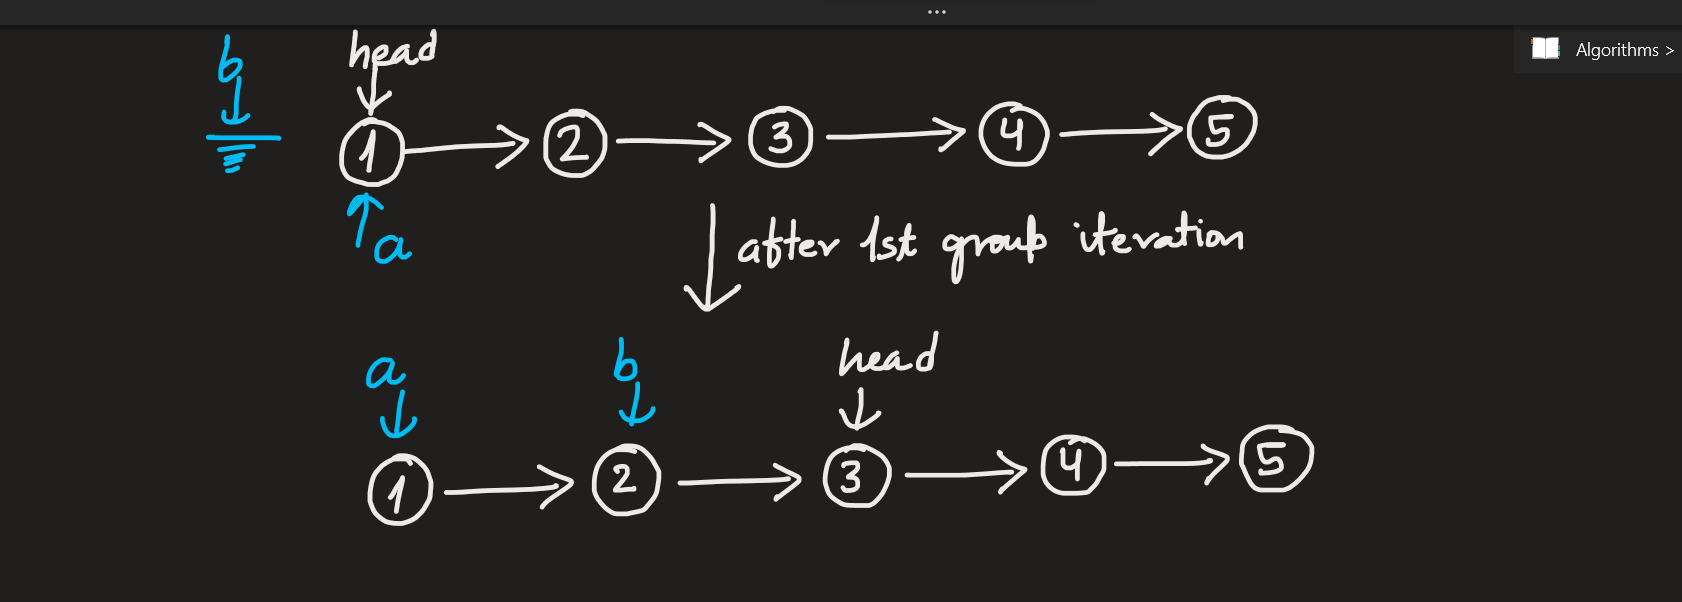 ...
Algorithms >
b head
1 2 3 4 5
a
after 1st group iteration
a b head
1 2 3 4 5